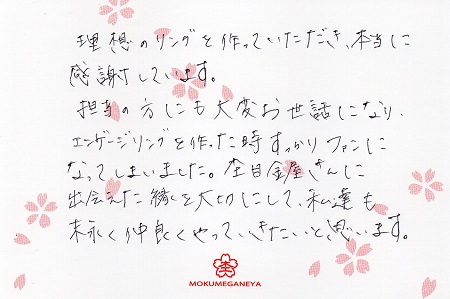 理想のリングを作っていただき、本当に
感謝しています。
担当の方にも大変お世話になり、
エンゲージリングを作った時すっかりファンに
なってしまいました。杢目金屋さんに
出会えた縁を大切にして、私達も
末永く仲良くやっていきたいと思います。
杢
MOKUMEGANEYA